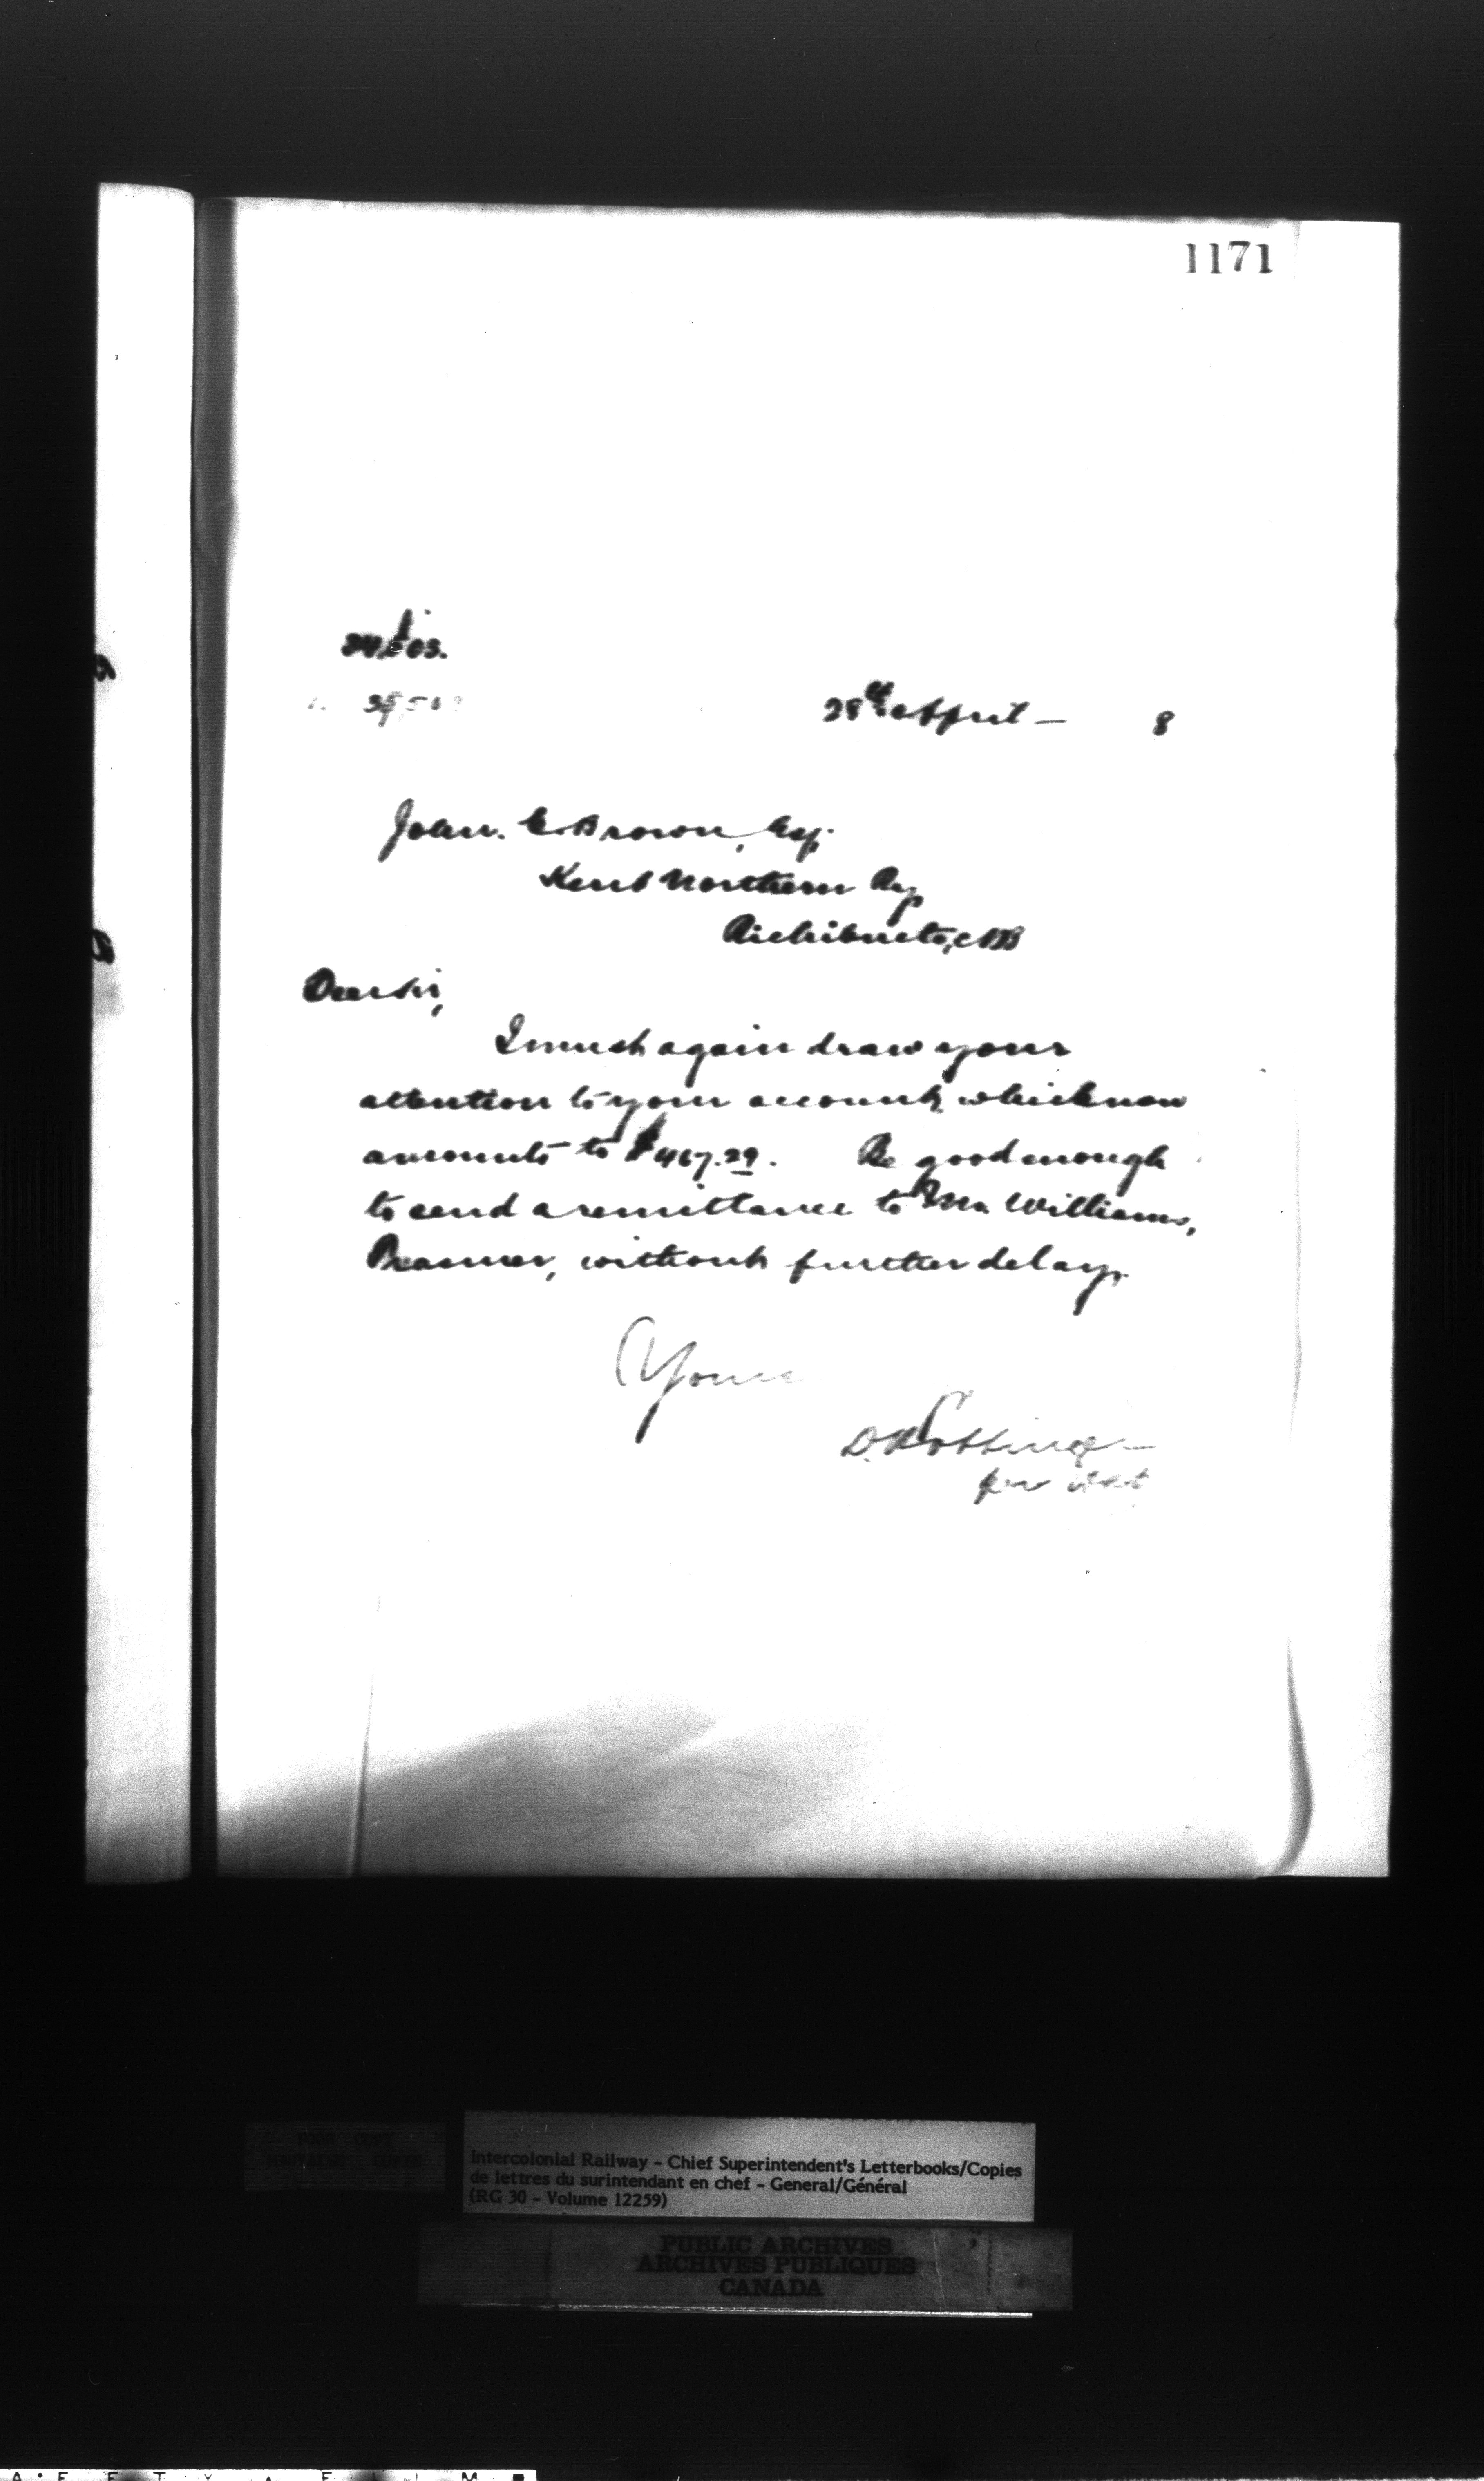 1171
28th April — 8
John. C. Brown, Esq.
Kent Northern Ry
Richibucto, NB
Dear Sir,
I must again draw your
attention to your account, which now
amounts to $467.29. Be good enough
to send a remittance to Mr. Williams,
Treasurer, without further delay.
Yours
D. Pottinger
per
Intercolonial Railway - Chief Superintendent's Letterbooks/Copies
de lettres du surintendant en chef - General/Général
(RG 30 - Volume 12259)
PUBLIC ARCHIVES
ARCHIVES PUBLIQUES
CANADA